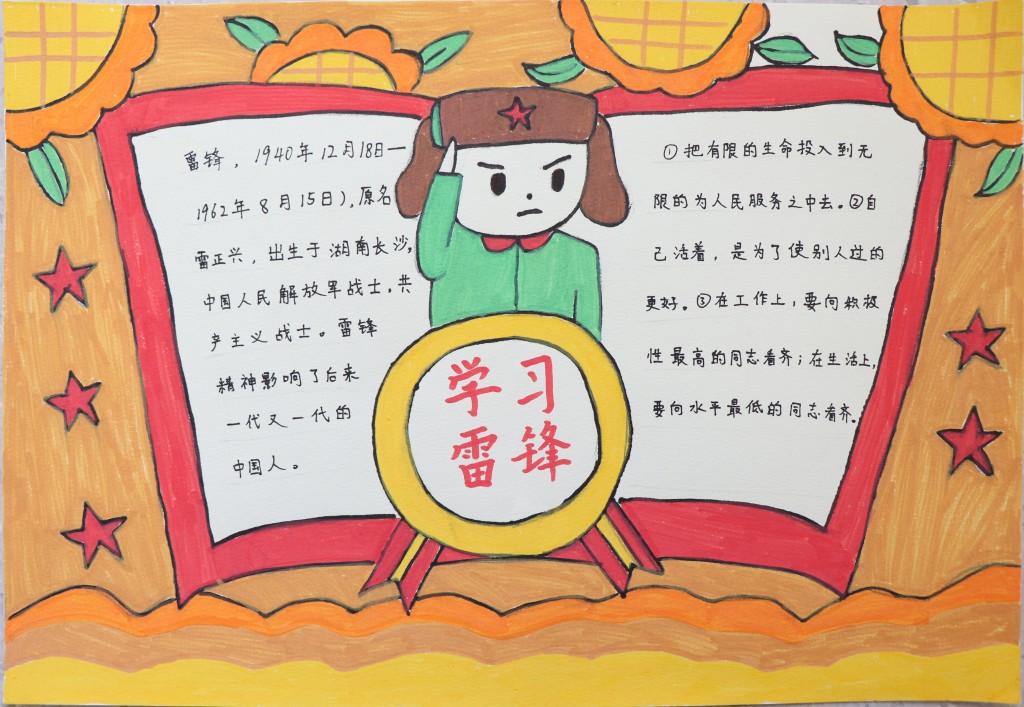 雷锋，1940年12月18日一
1962年8月15日），原名
雷正兴，出生于湖南长沙，
中国人民解放军战士。共
产主义战士。雷锋
精神影响了后来
一代又一代的
中国人。
学习
雷锋
①把有限的生命投入到无
限的为人民服务之中去。②自
己活着，是为了使别人过的
更好。③在工作上，要向积极
性最高的同志看齐；在生活上，
要向水平最低的同志看齐。